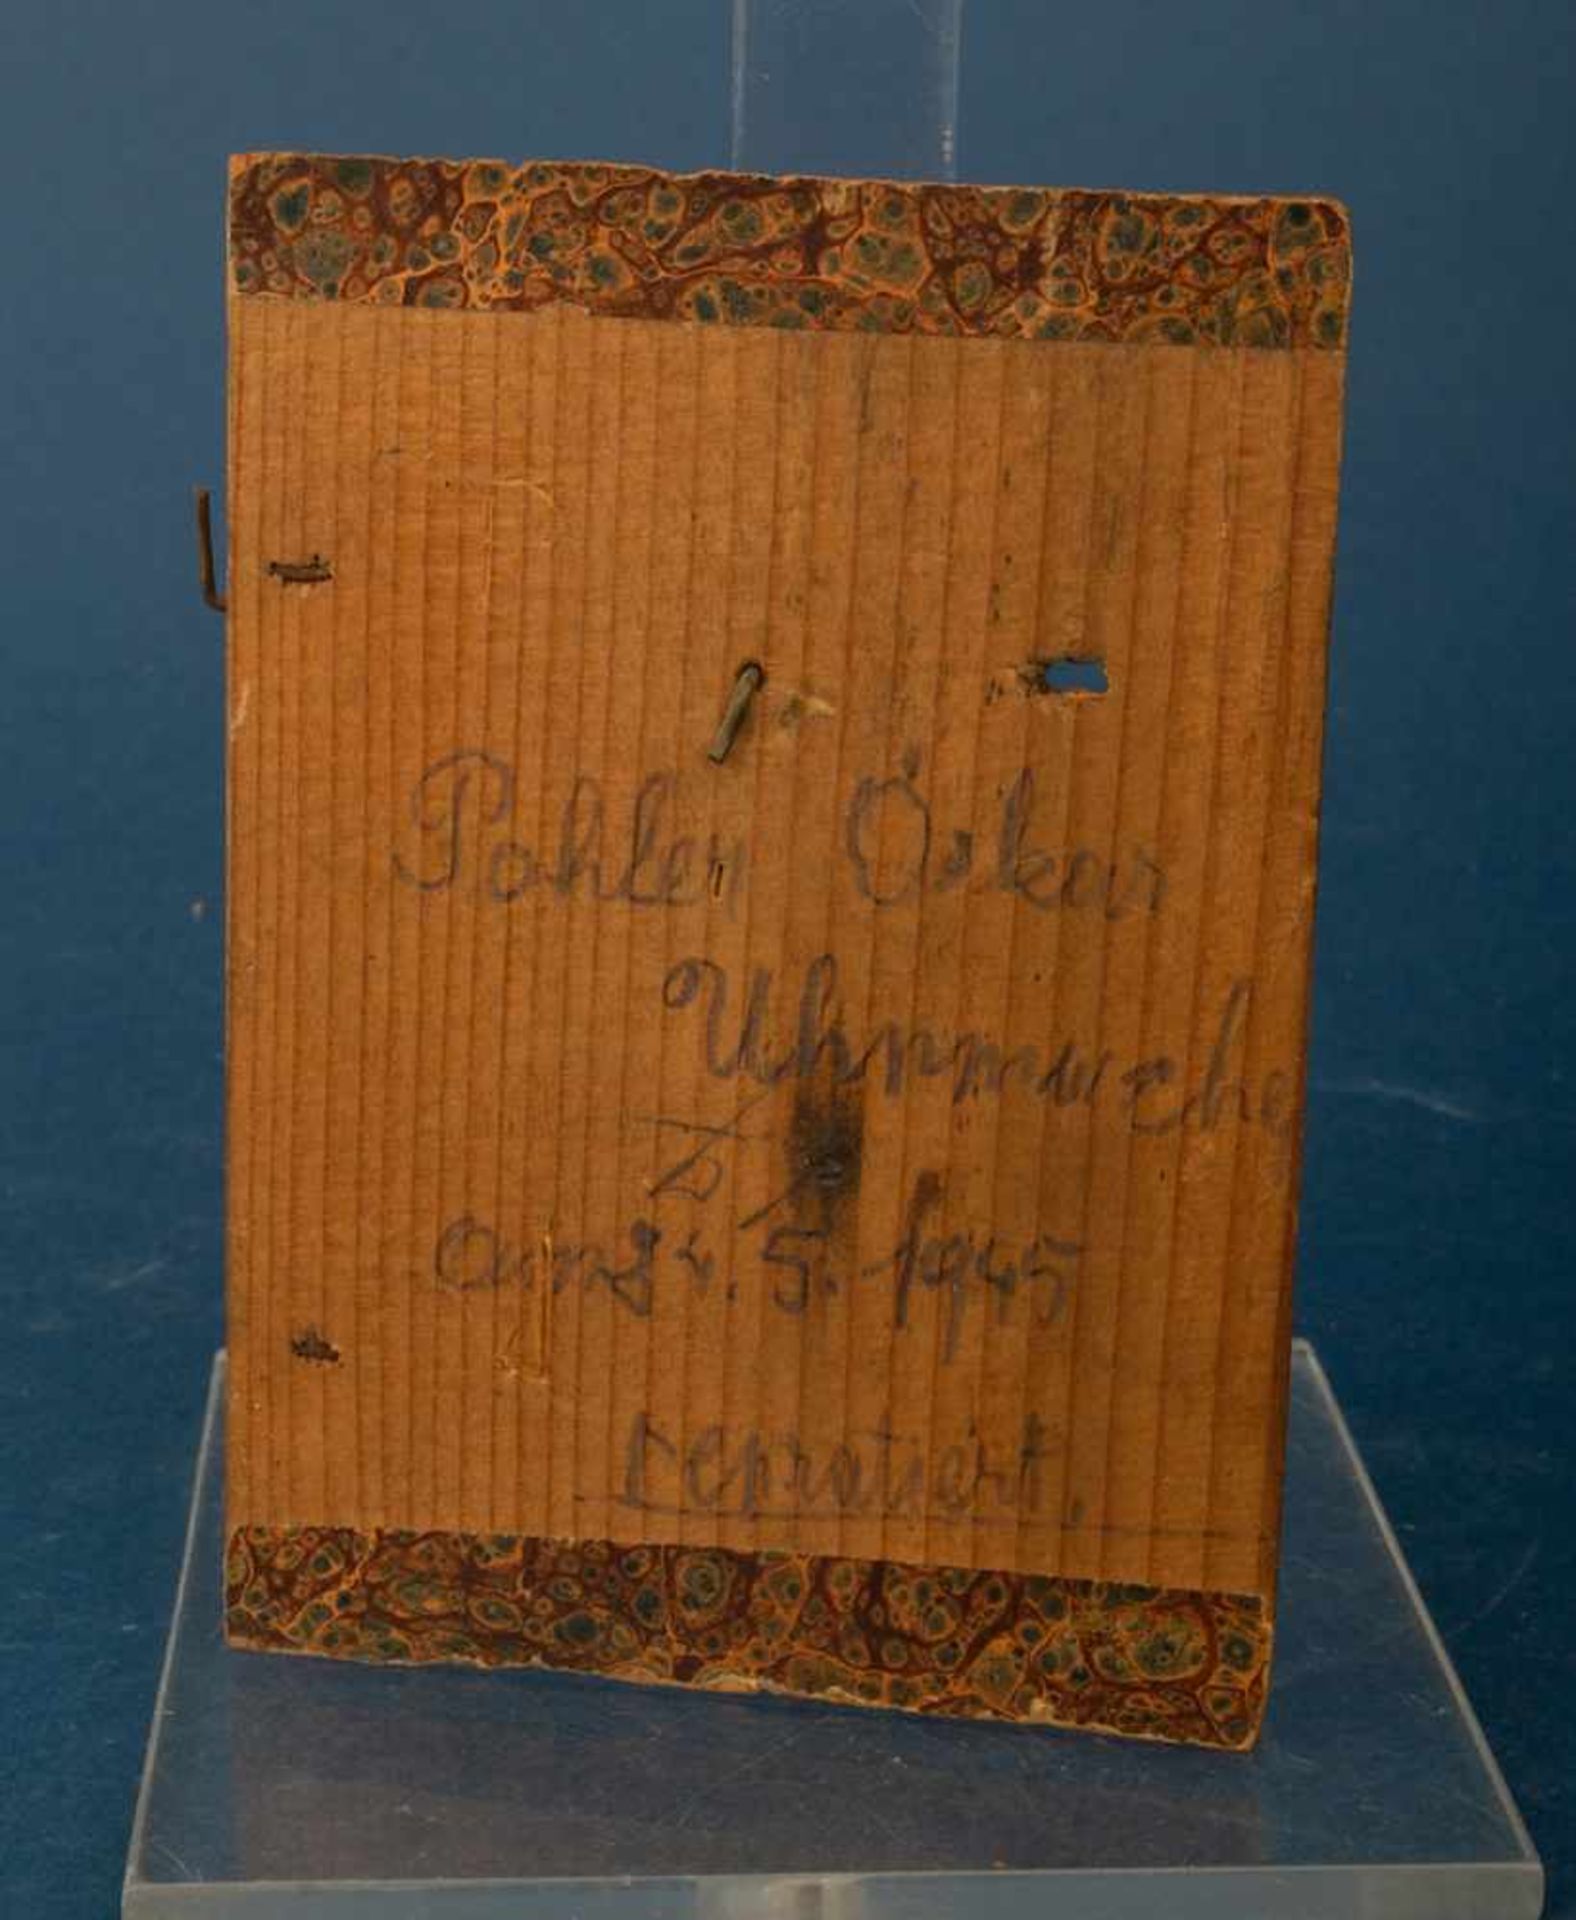 Pohler Oskar
Uhrmache
am 24. 5. 1945
repratiert.